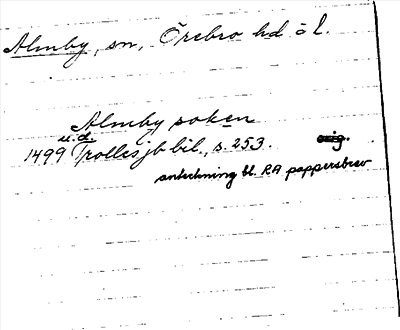 Almby, sn, Örebro hd ö l.
Almby soken
u.d.
1499 Trolles jb bil., s. 253. orig.
anteckning bl. RA pappersbrev